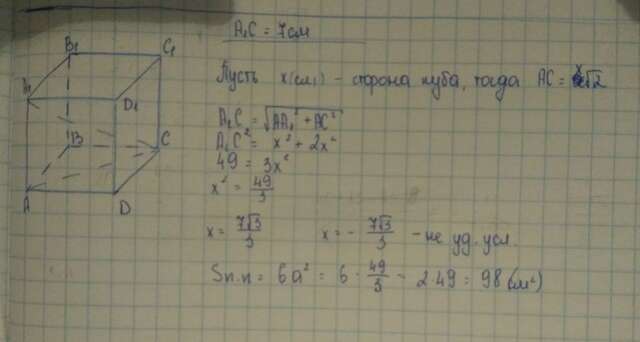 B₁
C₁
A₁
D₁
B
C
A
D
A₁C = 7см
Пусть x(см) - сторона куба, тогда AC = x√2
A₁C = √AA₁² + AC²
A₁C² = x² + 2x²
49 = 3x²
x² = 49/3
x = 7√3/3 x = - 7√3/3 - не уд. усл.
Sп.п = 6a² = 6 · 49/3 = 2·49 = 98 (см²)